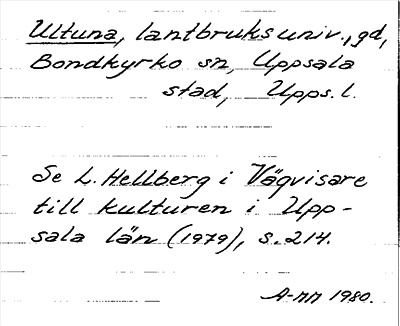 Ultuna, lantbruksuniv., gd,
Bondkyrko sn, Uppsala
stad, Upps. l.
Se L. Hellberg i Vägvisare
till kulturen i Upp-
sala län (1979), s. 214.
A-nn 1980.